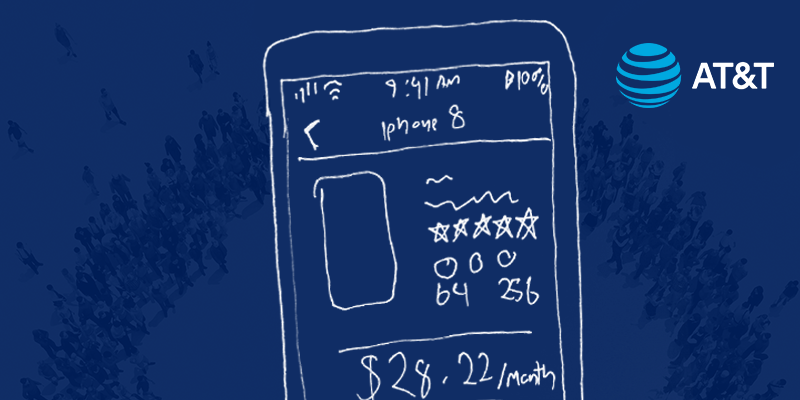 AT&T
9:41 AM 100%
Iphone 8
64 256
$28.22/Month